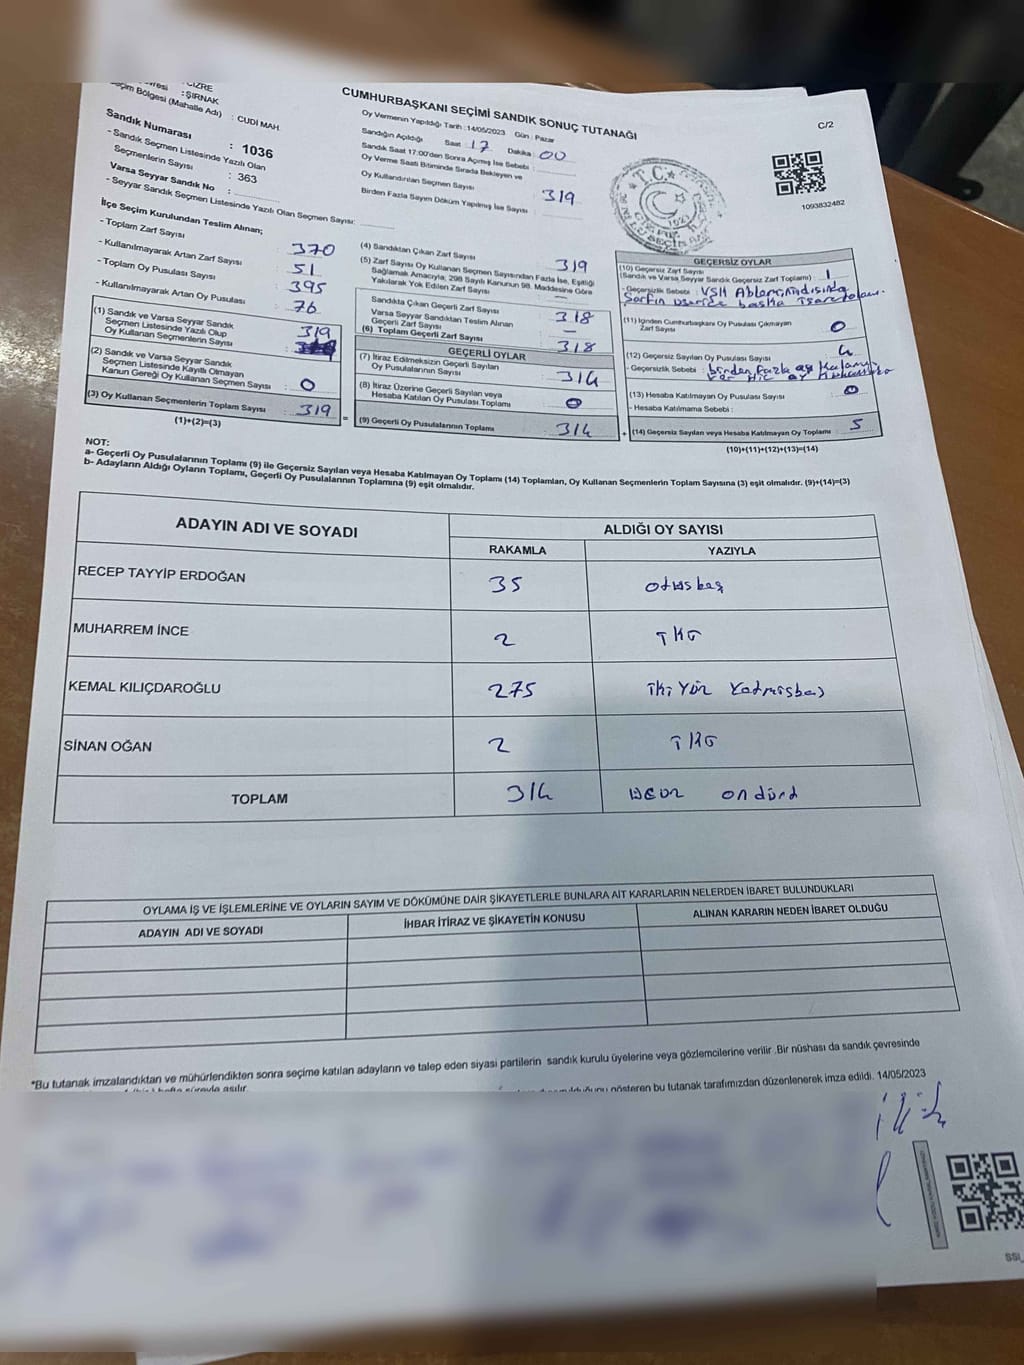 : CİZRE
: ŞIRNAK
Seçim Bölgesi (Mahalle Adı) : CUDİ MAH.
Sandık Numarası : 1036
- Sandık Seçmen Listesinde Yazılı Olan
Seçmenlerin Sayısı : 363
Varsa Seyyar Sandık No :
- Seyyar Sandık Seçmen Listesinde Yazılı Olan Seçmen Sayısı:
CUMHURBAŞKANI SEÇİMİ SANDIK SONUÇ TUTANAĞI
Oy Vermenin Yapıldığı Tarih :14/05/2023 Gün : Pazar
Sandığın Açıldığı Saat : 17 Dakika : 00
Sandık Saat 17:00'den Sonra Açımış İse Sebebi :
Oy Verme Saati Bitiminde Sırada Bekleyen ve
Oy Kullandırılan Seçmen Sayısı : 319
Birden Fazla Sayım Döküm Yapılmış İse Sayısı :
T.C.
C/2
1093832482
İlçe Seçim Kurulundan Teslim Alınan;
- Toplam Zarf Sayısı : 370
- Kullanılmayarak Artan Zarf Sayısı : 51
- Toplam Oy Pusulası Sayısı : 395
- Kullanılmayarak Artan Oy Pusulası : 76
(1) Sandık ve Varsa Seyyar Sandık
Seçmen Listesinde Yazılı Olup
Oy Kullanan Seçmenlerin Sayısı : 319
(2) Sandık ve Varsa Seyyar Sandık
Seçmen Listesinde Kayıtlı Olmayan
Kanun Gereği Oy Kullanan Seçmen Sayısı : 0
(3) Oy Kullanan Seçmenlerin Toplam Sayısı : 319
(1)+(2)=(3)
=
(4) Sandıktan Çıkan Zarf Sayısı : 319
(5) Zarf Sayısı Oy Kullanan Seçmen Sayısından Fazla İse, Eşitliği
Sağlamak Amacıyla; 298 Sayılı Kanunun 98. Maddesine Göre
Yakılarak Yok Edilen Zarf Sayısı : —
Sandıkta Çıkan Geçerli Zarf Sayısı : 318
Varsa Seyyar Sandıktan Teslim Alınan
Geçerli Zarf Sayısı : —
(6) Toplam Geçerli Zarf Sayısı : 318
GEÇERLİ OYLAR
(7) İtiraz Edilmeksizin Geçerli Sayılan
Oy Pusulasının Sayısı : 314
(8) İtiraz Üzerine Geçerli Sayılan veya
Hesaba Katılan Oy Pusulası Toplamı : 0
(9) Geçerli Oy Pusulalarının Toplamı : 314
+
GEÇERSİZ OYLAR
(10) Geçersiz Zarf Sayısı
(Sandık ve Varsa Seyyar Sandık Geçersiz Zarf Toplamı) : 1
- Geçersizlik Sebebi :
(11) İçinden Cumhurbaşkanı Oy Pusulası Çıkmayan
Zarf Sayısı : 0
(12) Geçersiz Sayılan Oy Pusulası Sayısı : 4
- Geçersizlik Sebebi : birden fazla
(13) Hesaba Katılmayan Oy Pusulası Sayısı : 0
- Hesaba Katılmama Sebebi :
(14) Geçersiz Sayılan veya Hesaba Katılmayan Oy Toplamı : 5
(10)+(11)+(12)+(13)=(14)
NOT:
a- Geçerli Oy Pusulalarının Toplamı (9) ile Geçersiz Sayılan veya Hesaba Katılmayan Oy Toplamı (14) Toplamları, Oy Kullanan Seçmenlerin Toplam Sayısına (3) eşit olmalıdır. (9)+(14)=(3)
b- Adayların Aldığı Oyların Toplamı, Geçerli Oy Pusulalarının Toplamına (9) eşit olmalıdır.
ADAYIN ADI VE SOYADI ALDIĞI OY SAYISI
RAKAMLA YAZIYLA
RECEP TAYYİP ERDOĞAN 35 otuzbeş
MUHARREM İNCE 2 İKİ
KEMAL KILIÇDAROĞLU 275 ikiyüz yetmişbeş
SİNAN OĞAN 2 İKİ
TOPLAM 314 üçyüz ondört
OYLAMA İŞ VE İŞLEMLERİNE VE OYLARIN SAYIM VE DÖKÜMÜNE DAİR ŞİKAYETLERLE BUNLARA AİT KARARLARIN NELERDEN İBARET BULUNDUKLARI
ADAYIN ADI VE SOYADI İHBAR İTİRAZ VE ŞİKAYETİN KONUSU ALINAN KARARIN NEDEN İBARET OLDUĞU
"Bu tutanak imzalandıktan ve mühürlendikten sonra seçime katılan adayların ve talep eden siyasi partilerin sandık kurulu üyelerine veya gözlemcilerine verilir .Bir nüshası da sandık çevresinde
gösteren bu tutanak tarafımızdan düzenlenerek imza edildi. 14/05/2023